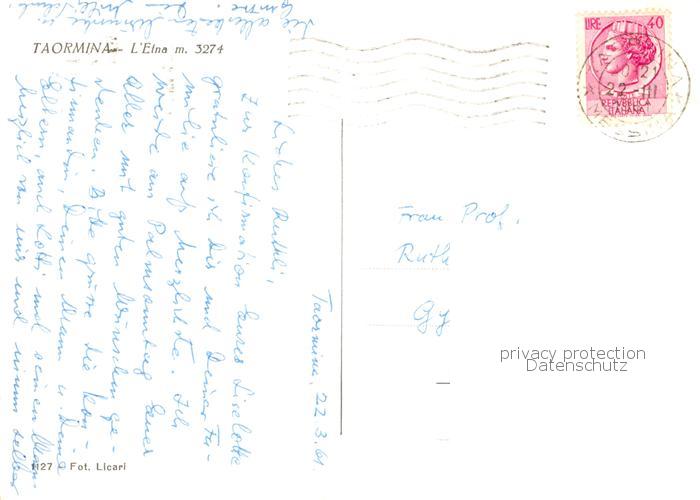 TAORMINA - L'Etna m. 3274
Taormina, 22.3.61
Liebes Ruthli,
Zur Konfirmation Eures Liselotte
gratuliere ich Dir und Deiner Fa-
milie auf herzlichste. Ich
werde am Palmsonntag Euer
Aller mit guten Wünschen ge-
denken. Bitte grüsse die Kon-
firmandin, Deinen Mann u. Deine
Eltern, und Lotti und seinen
herzlich von mir und nimm selber
die allerbesten
1127 - Fot. Licari
LIRE 40
REPVBBLICA
ITALIANA
22 III
Frau Prof.
Ruth
Gy
privacy protection
Datenschutz